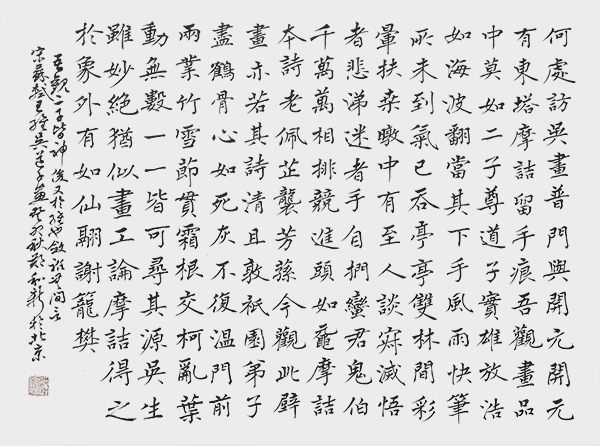 何處訪吳畫普門與開元開元
有東塔摩詰留手痕吾觀畫品
中莫如二子尊道子實雄放浩
如海波翻當其下手風雨快筆
所未到氣已吞亭亭雙林間彩
暈扶桑暾中有至人談寂滅悟
者悲涕迷者手自捫蠻君鬼伯
千萬萬相排競進頭如黿摩詰
本詩老佩芷襲芳蓀今觀此壁
畫亦若其詩清且敦祇園弟子
盡鶴骨心如死灰不復溫門前
兩叢竹雪節貫霜根交柯亂葉
動無數一一皆可尋其源吳生
雖妙絕猶似畫工論摩詰得之
於象外有如仙翮謝籠樊
吾觀二子皆神俊又於維也斂衽無間言
宋蘇軾王維吳道子畫癸卯秋於北京